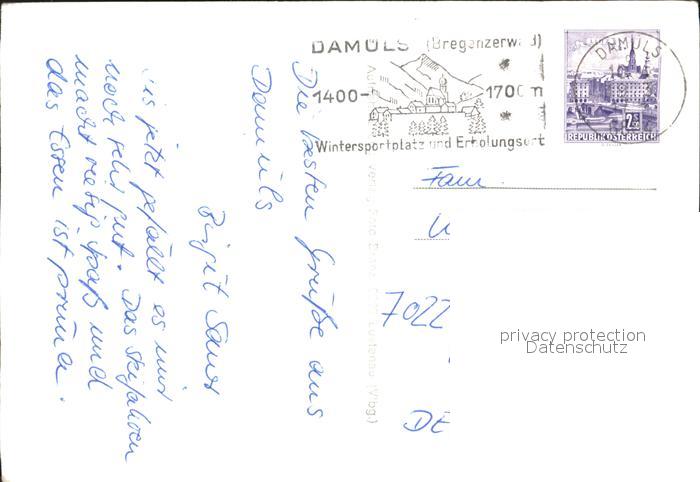 DAMÜLS (Bregenzerwald)
1400-1700 m
Wintersportplatz und Erholungsort
DAMÜLS
2.50
REPUBLIK ÖSTERREICH
Die besten Grüße aus
Damüls
Birgit
Bis jetzt gefällt es mir
noch sehr gut. Das Skifahren
macht riesig Spaß und
das Essen ist prima.
Fam.
7022
DE
Lustenau (Vlbg.)
privacy protection
Datenschutz